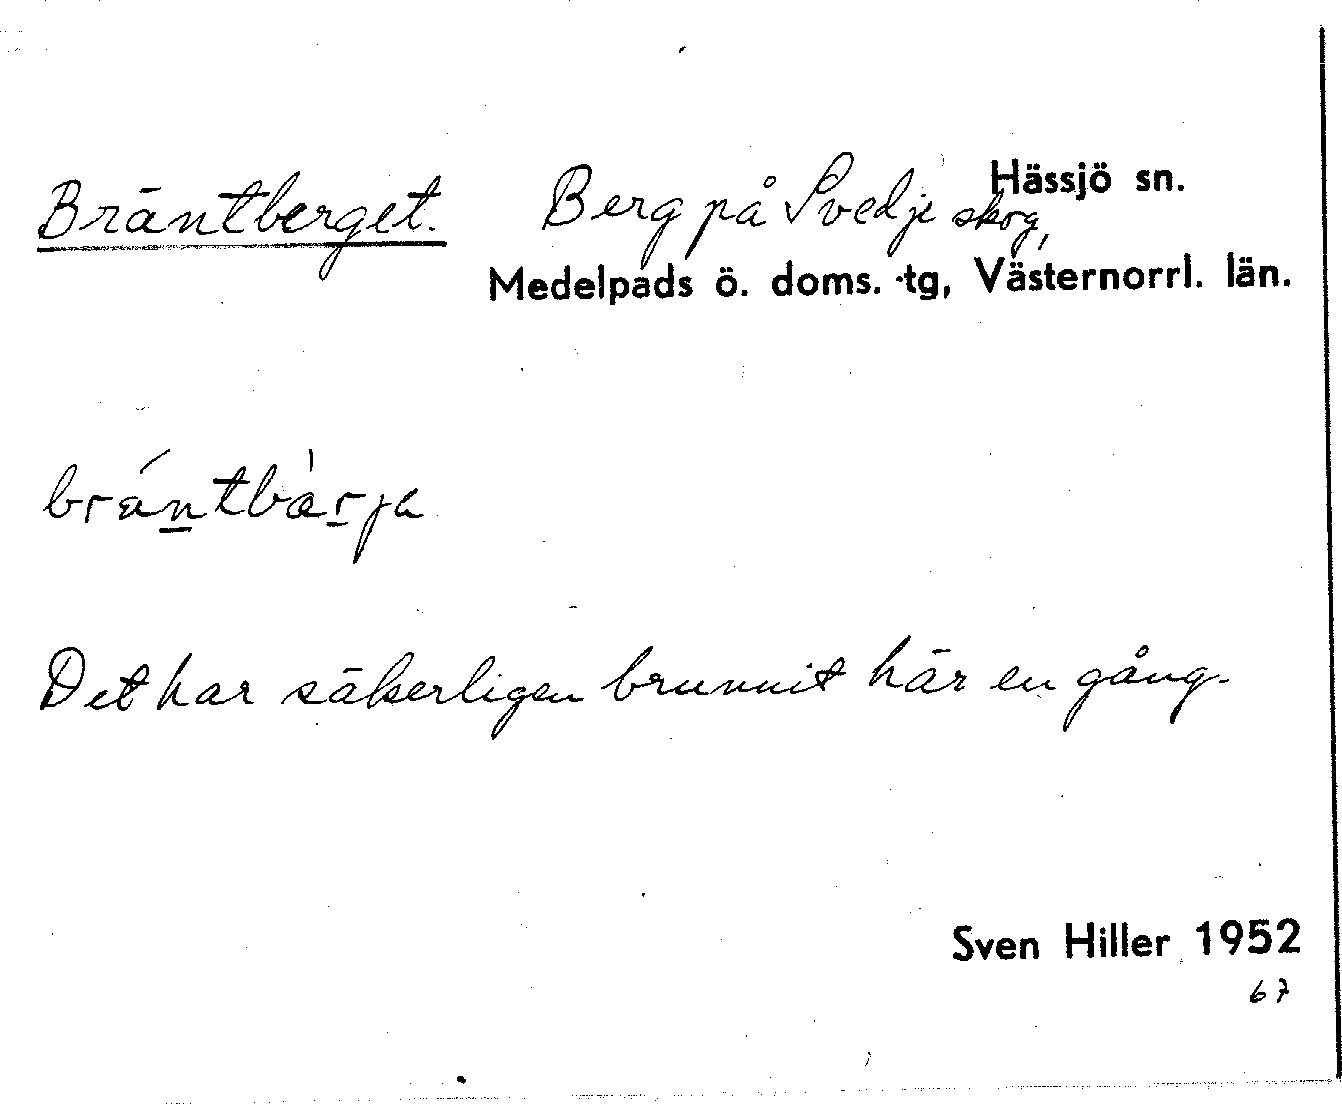 Bräntberget. Berg på Svedje skog, Hässjö sn.
Medelpads ö. doms. -tg, Västernorrl. län.
bräntbärja
Det har säkerligen brunnit här en gång.
Sven Hiller 1952
67